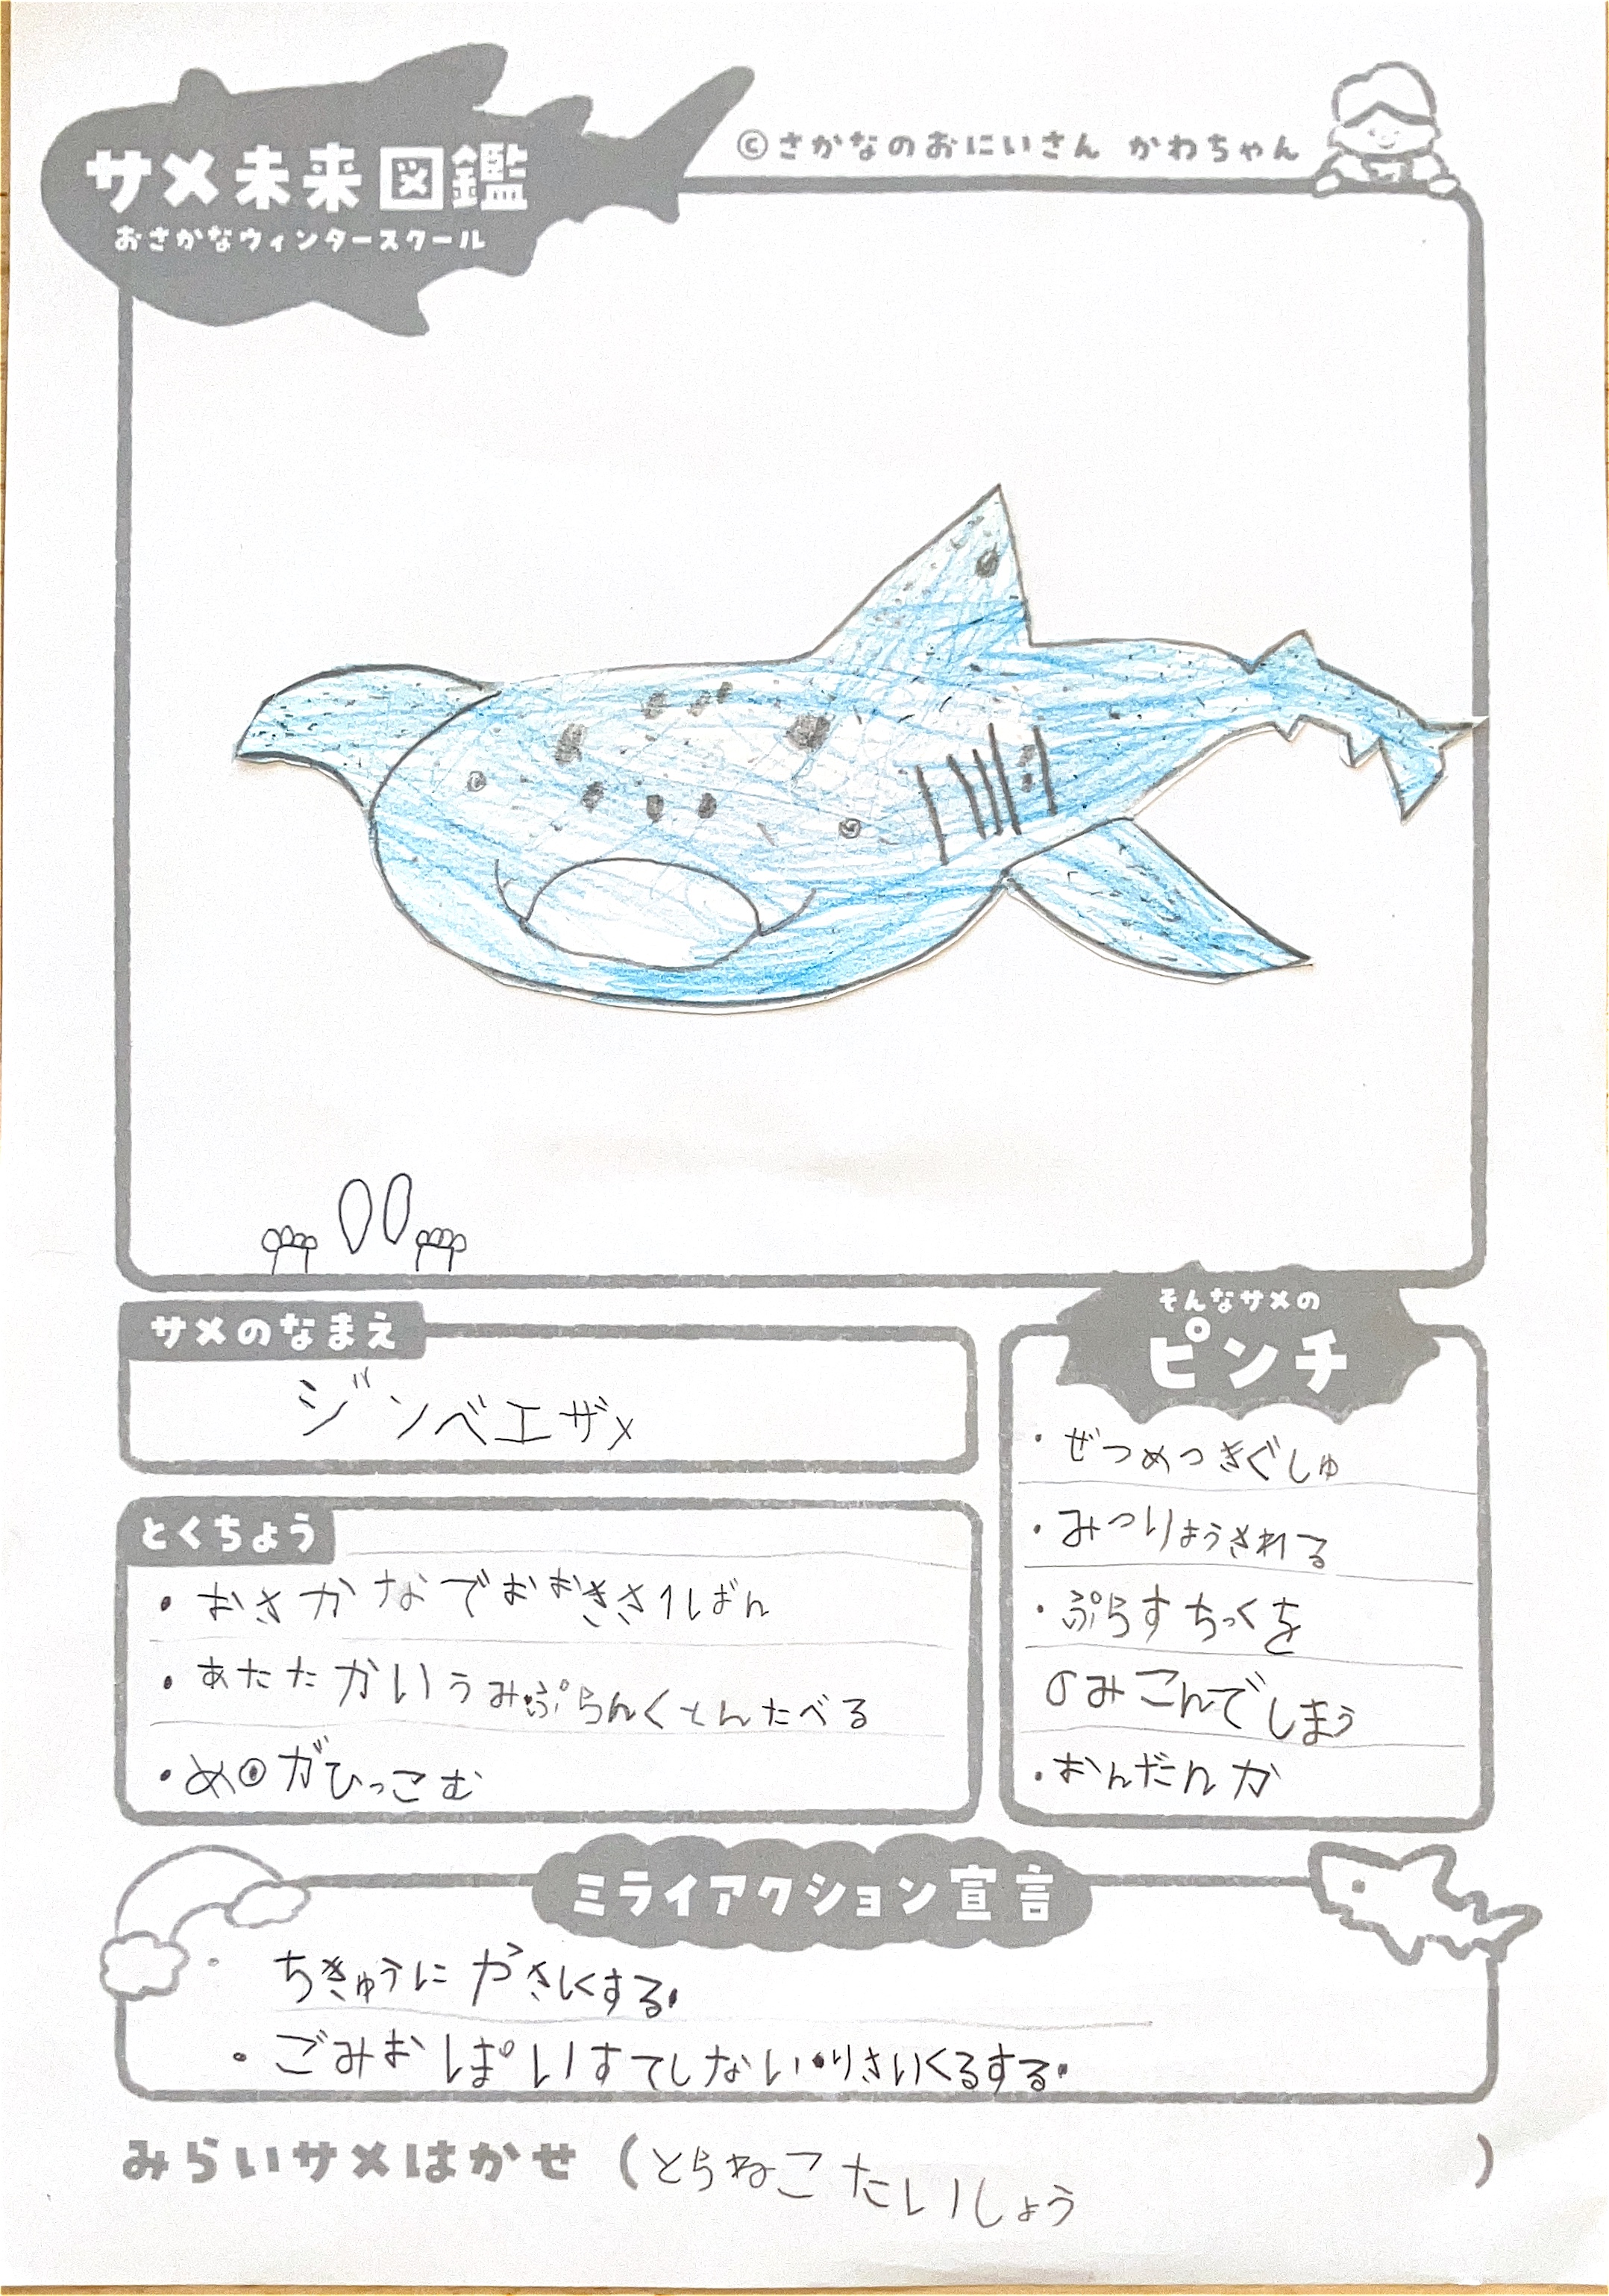 ©さかなのおにいさん かわちゃん
サメ未来図鑑
おさかなウィンタースクール
サメのなまえ
ジンベエザメ
とくちょう
・おさかなでおおきさ1ばん
・あたたかいうみ・ぷらんくとんたべる
・め◉がひっこむ
そんなサメの
ピンチ
・ぜつめつきぐしゅ
・みつりょうされる
・ぷらすちっくを
のみこんでしまう
・おんだんか
ミライアクション宣言
・ちきゅうにやさしくする・
・ごみおぽいすてしない・りさいくるする・
みらいサメはかせ（とらねこたいしょう）